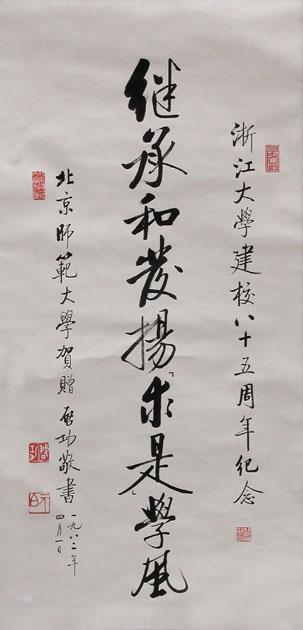 浙江大學建校八十五周年纪念
继承和发揚「求是」學風
北京師範大學賀贈 啓功敬書
一九八二年
四月一日